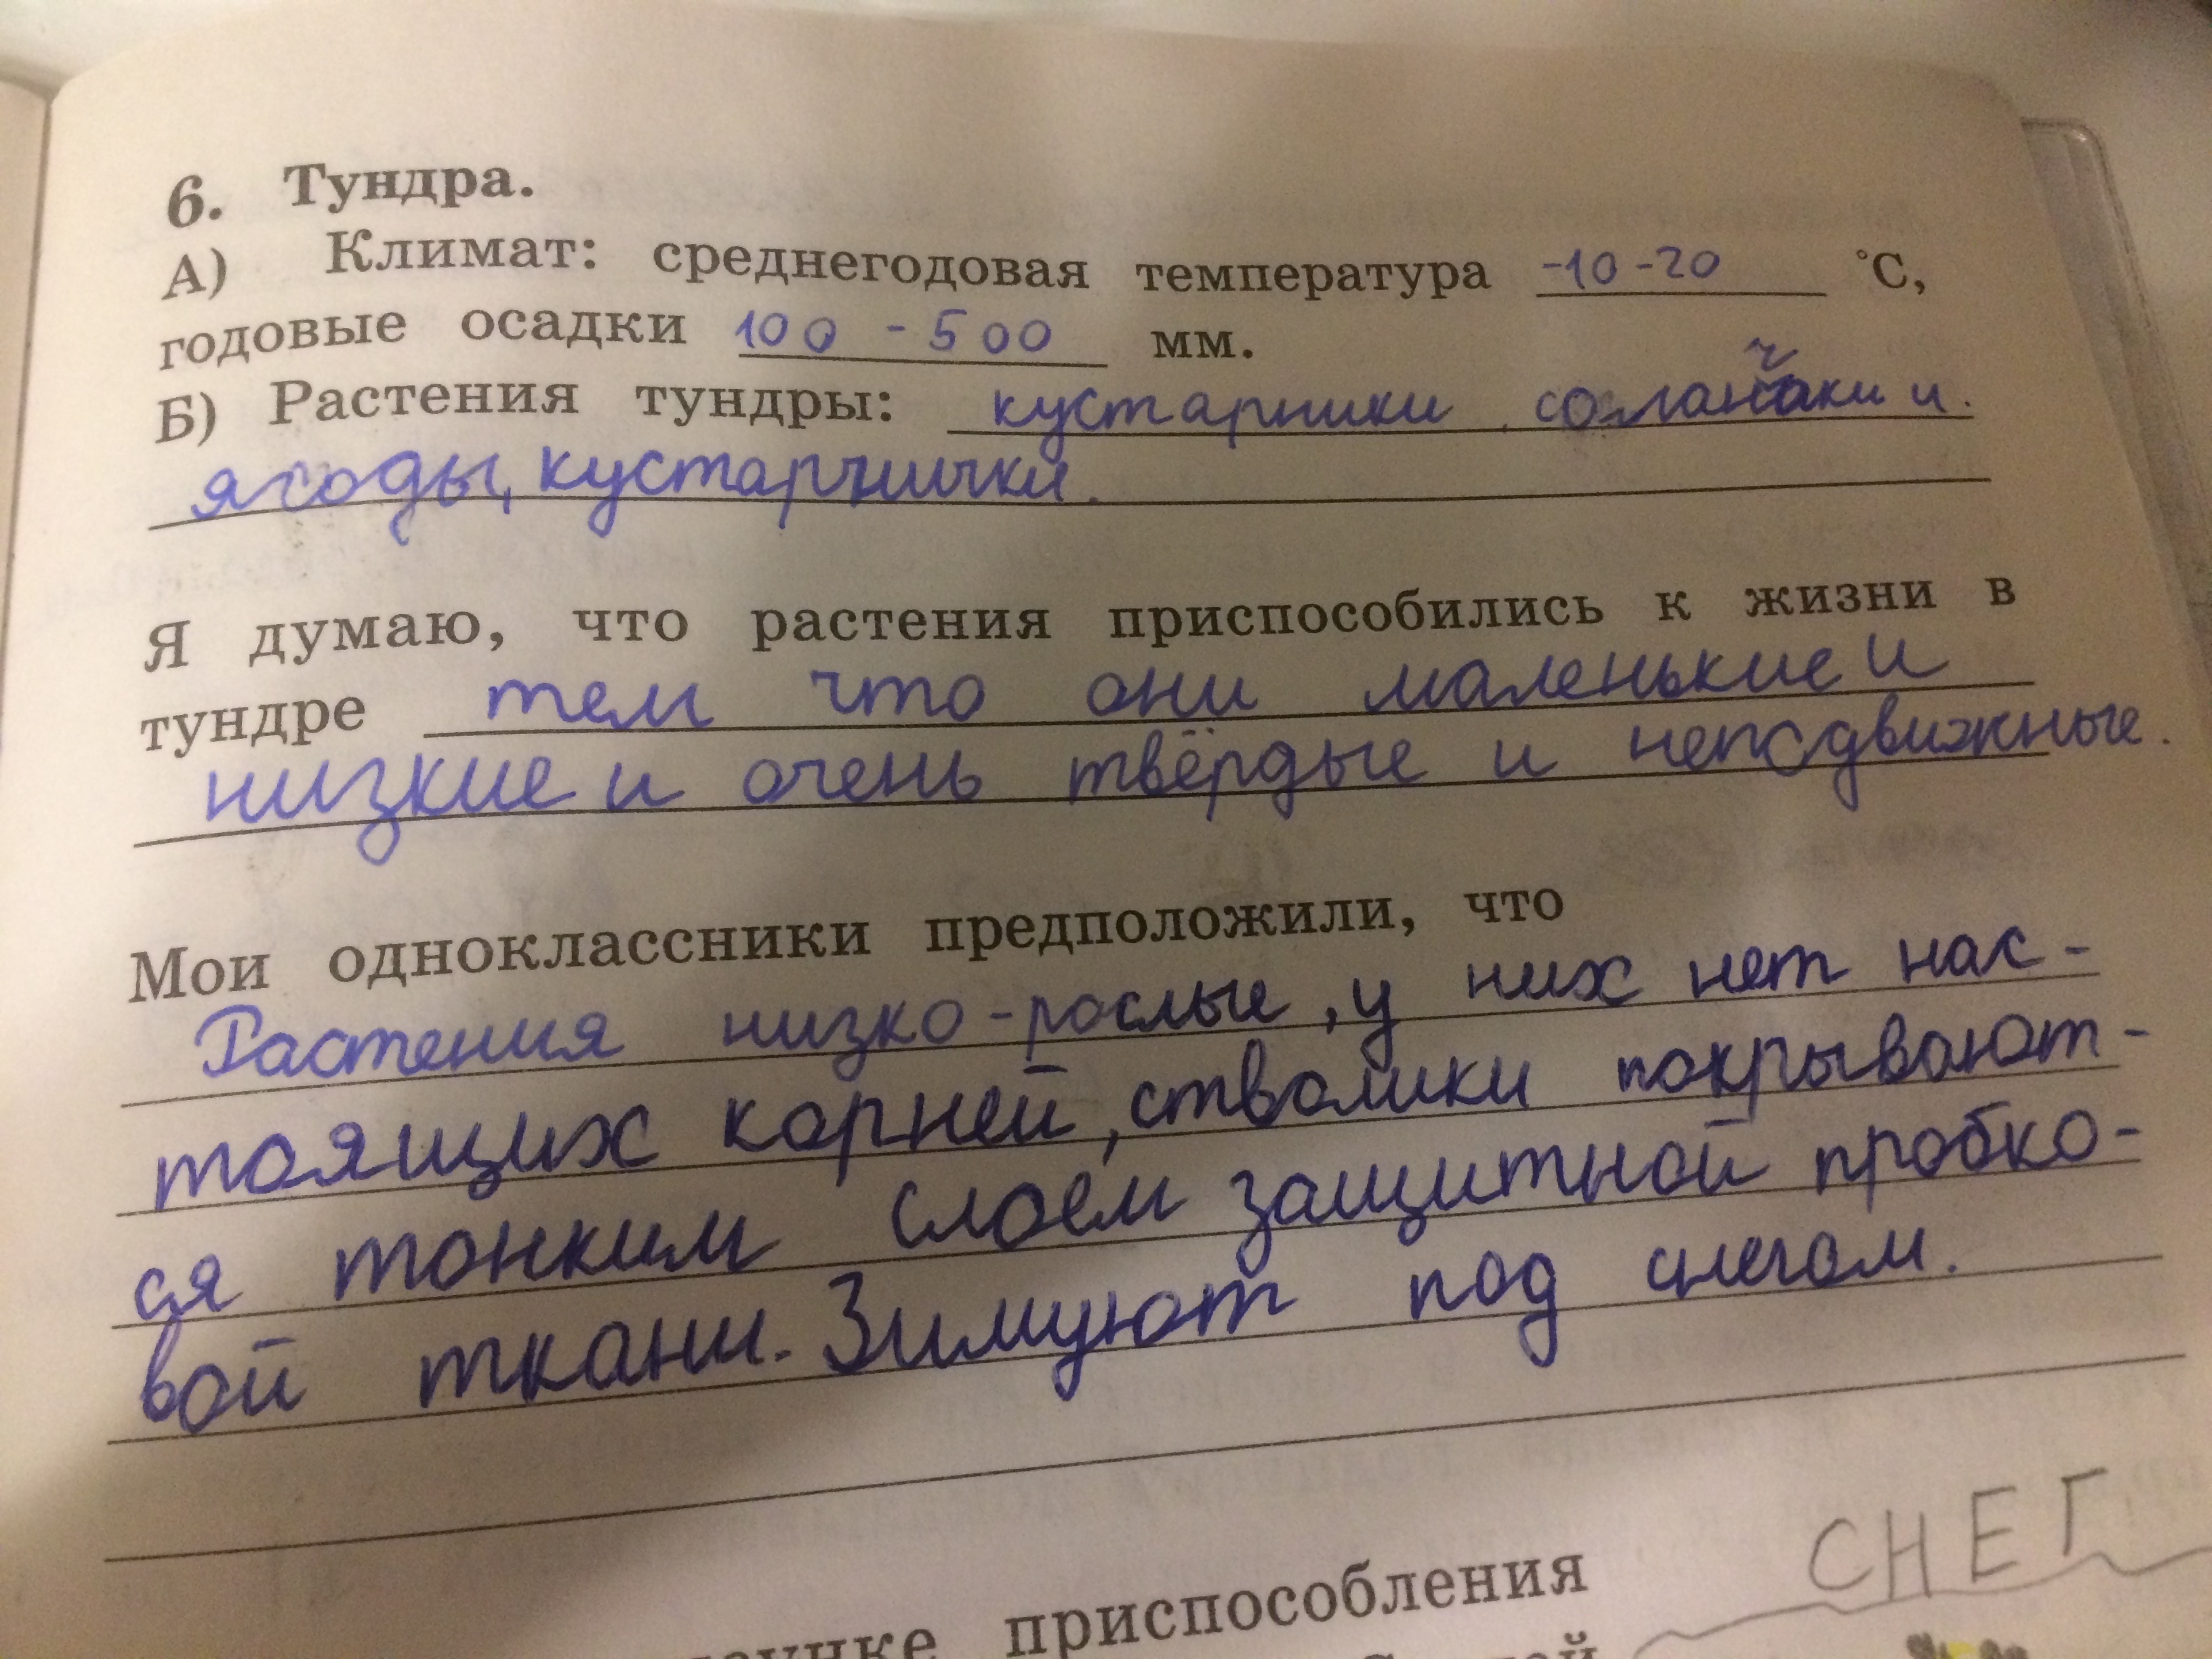 6. Тундра.
А) Климат: среднегодовая температура -10-20 °С,
годовые осадки 100 - 500 мм.
Б) Растения тундры: кустарники, солончаки и
ягоды, кустарнички.
Я думаю, что растения приспособились к жизни в
тундре тем что они маленькие и
низкие и очень твёрдые и неподвижные.
Мои одноклассники предположили, что
Растения низко-рослые, у них нет нас-
тоящих корней, стволики покрывают-
ся тонким слоем защитной пробко-
вой ткани. Зимуют под снегом.
СНЕГ
приспособления